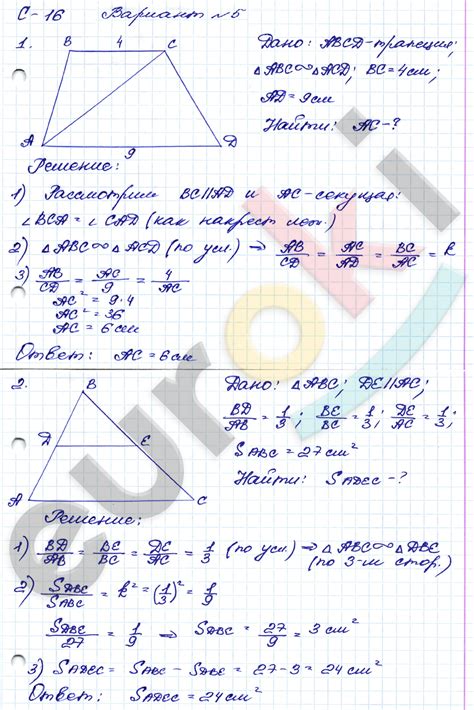 С-16 Вариант №5
1.
B 4 C
A 9 D
Дано: ABCD-трапеция;
△ABC∞△ACD; BC=4см;
AD=9см
Найти: AC-?
Решение:
1) Рассмотрим BC∥AD и AC-секущая:
∠BCA=∠CAD (как накрест леж.)
2) △ABC∞△ACD (по усл.) ⇒ AB/CD = AC/AD = BC/AC = k
3) AB/CD = AC/9 = 4/AC
AC² = 9·4
AC² = 36
AC = 6 см
Ответ: AC = 6 см
2.
B
D E
A C
Дано: △ABC; DE∥AC;
BD/AB = 1/3; BE/BC = 1/3; DE/AC = 1/3;
S ABC = 27 см²
Найти: S ADEC -?
Решение:
1) BD/AB = BE/BC = DE/AC = 1/3 (по усл.) ⇒ △ABC∞△DBE
(по 3-м стор.)
2) S DBE/S ABC = k² = (1/3)² = 1/9
S DBE/27 = 1/9 ⇒ S DBE = 27/9 = 3 см²
3) S ADEC = S ABC - S DBE = 27-3 = 24 см²
Ответ: S ADEC = 24 см²
euroki